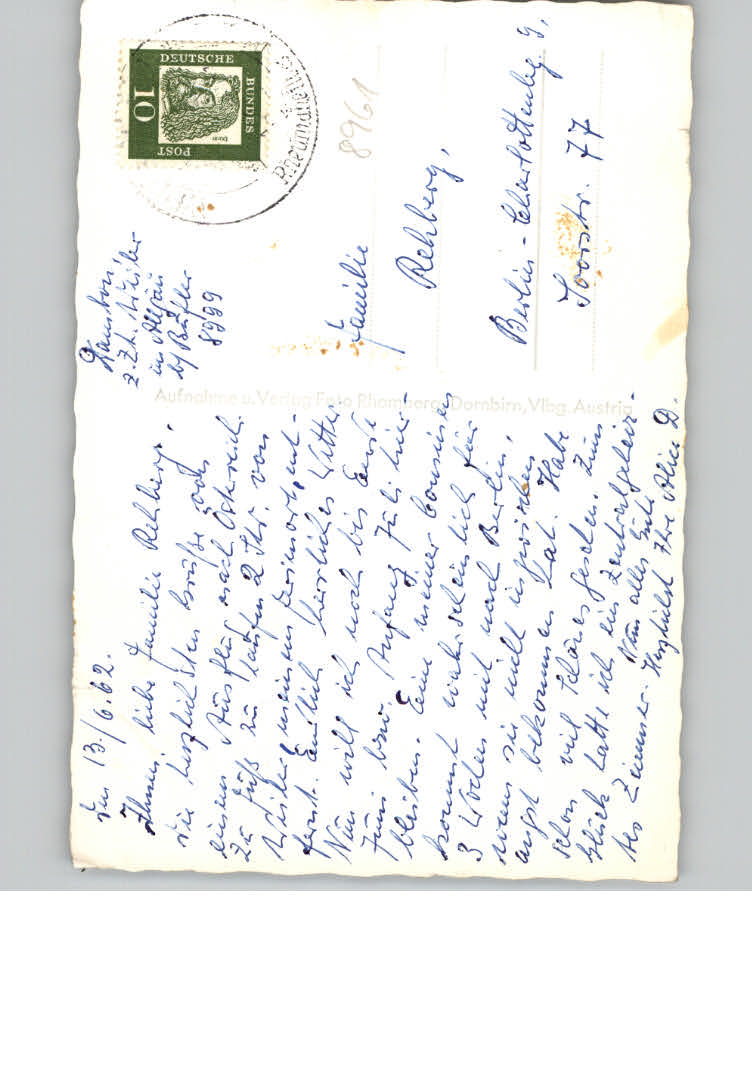 Den 13./6.62.
Ihnen, liebe Familie Rehberg,
die herzlichsten Grüße von
einem Ausflug nach Österreich.
Zu Fuß zu laufen 2 Std. von
Weiler meinem Ferienort, ent-
fernt. Endlich herrliches Wetter
Nun will ich noch bis Ende
Juni bzw. Anfang Juli hier
bleiben. Eine meiner Cousinen
kommt wahrscheinlich für
3 Wochen mit nach Berlin,
wenn sie nicht inzwischen
angst bekommen hat. Habe
schon viel schönes gesehen. Zum
Glück hatte ich ein Zentralgeheiz-
tes Zimmer. Nun alles Gute
Herzlichst Ihre D.
z.Zt. Weiler
im Allgäu
8999
DEUTSCHE
BUNDES
POST
10
Dürer
8961
Familie
Rehberg,
Berlin-Charlottenburg 9,
Soorstr. 77
Aufnahme u. Verlag Foto Rhomberg, Dornbirn, Vlbg. Austria